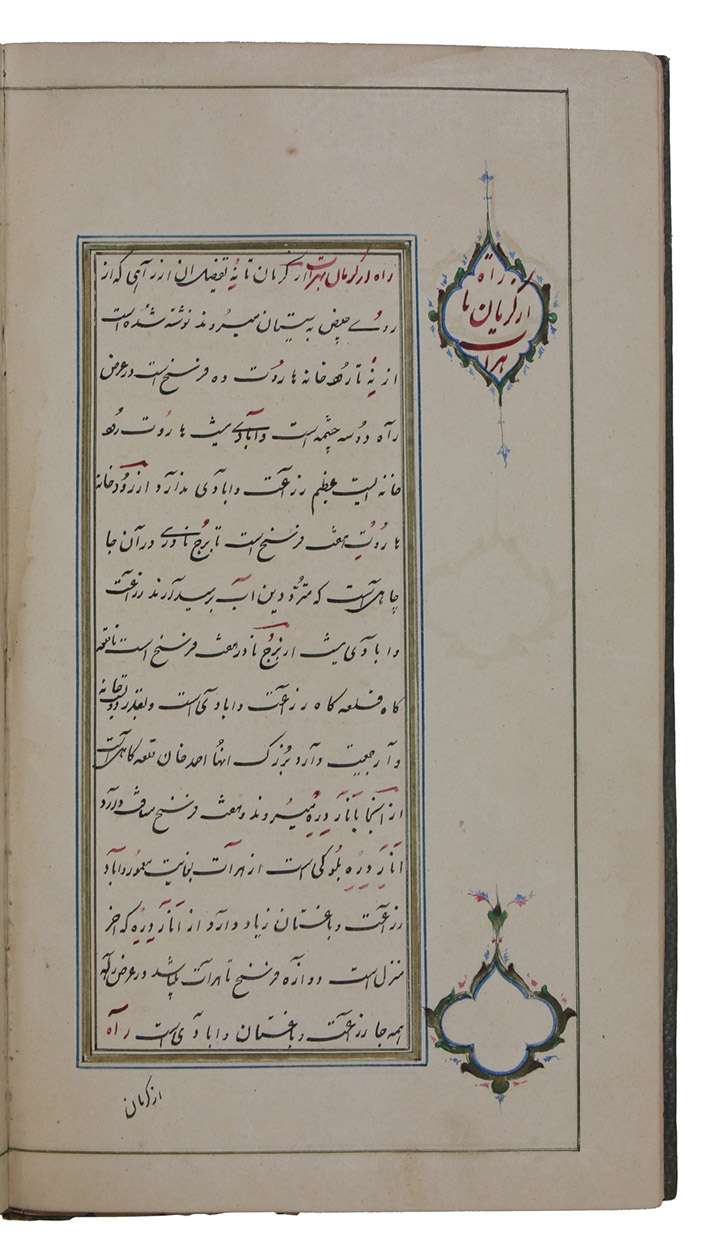 راه از کرمان بهرات از کرمان تا نِهْ تفصیل آن از راهی که از
روی حیض به سیستان میروند نوشته شده است
از نِهْ تا رودخانه هاروت ده فرسخ است در عرض
راه دو سه چشمه است و آبادی نیست هاروت رود
خانه ایست عظیم زراعت و آبادی ندارد از رودخانه
هاروت هفت فرسخ است تا برج نادری در آن جا
چاهی است که مترددین آب برمیدارند زراعت
و آبادی نیست از برج نادر هفت فرسخ است تا قلعه
کاه قلعه کاه زراعت و آبادی است و بقدر دویست خانه
وار جمعیت دارد بزرگ آنها احمد خان قلعه کاهی است
از آنجا به انار دره میروند و هفت فرسخ مسافت دارد
انار دره بلوکی است از هرات بغایت معمور و آباد
زراعت و باغستان زیاد دارد از انار دره که آخر
منزل است دوازده فرسخ تا هرات میباشد در عرض راه
همه جا زراعت و باغستان و آبادی است راه
از کرمان
راه
از کرمان تا
هرات